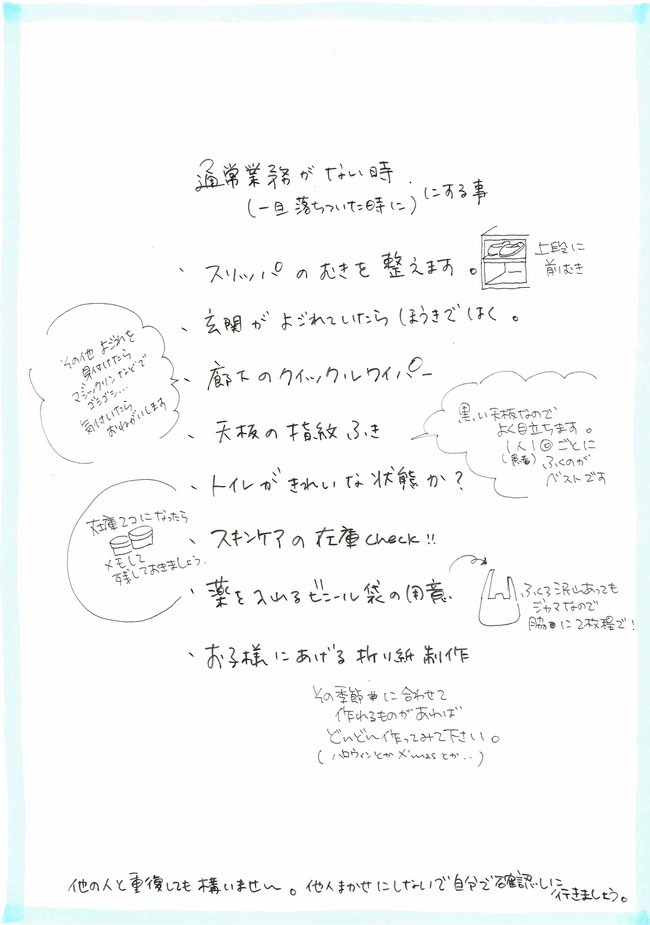 通常業務がない時
(一旦落ちついた時に)にする事
、スリッパのむきを整えます。
上段に
前むき
、玄関がよごれていたらほうきではく。
その他よごれを
見付けたら
マジックリンなどで
ゴシゴシ…
気付いたら
おねがいします
、廊下のクイックルワイパー
、天板の指紋ふき
黒い天板なので
よく目立ちます。
1人1©ごとに
(患者)ふくのが
ベストです
、トイレがきれいな状態か?
、スキンケアの在庫check!!
在庫2コになったら
メモして
残しておきましょう.
、薬を入れるビニール袋の用意.
ふくろ沢山あっても
ジャマなので
脇に2枚程で!
、お子様にあげる折り紙制作
その季節に合わせて
作れるものがあれば
どんどん作ってみて下さい。
(ハロウィンとかX'masとか‥)
他の人と重複しても構いませーん。他人まかせにしないで自分で確認しに
行きましょう。